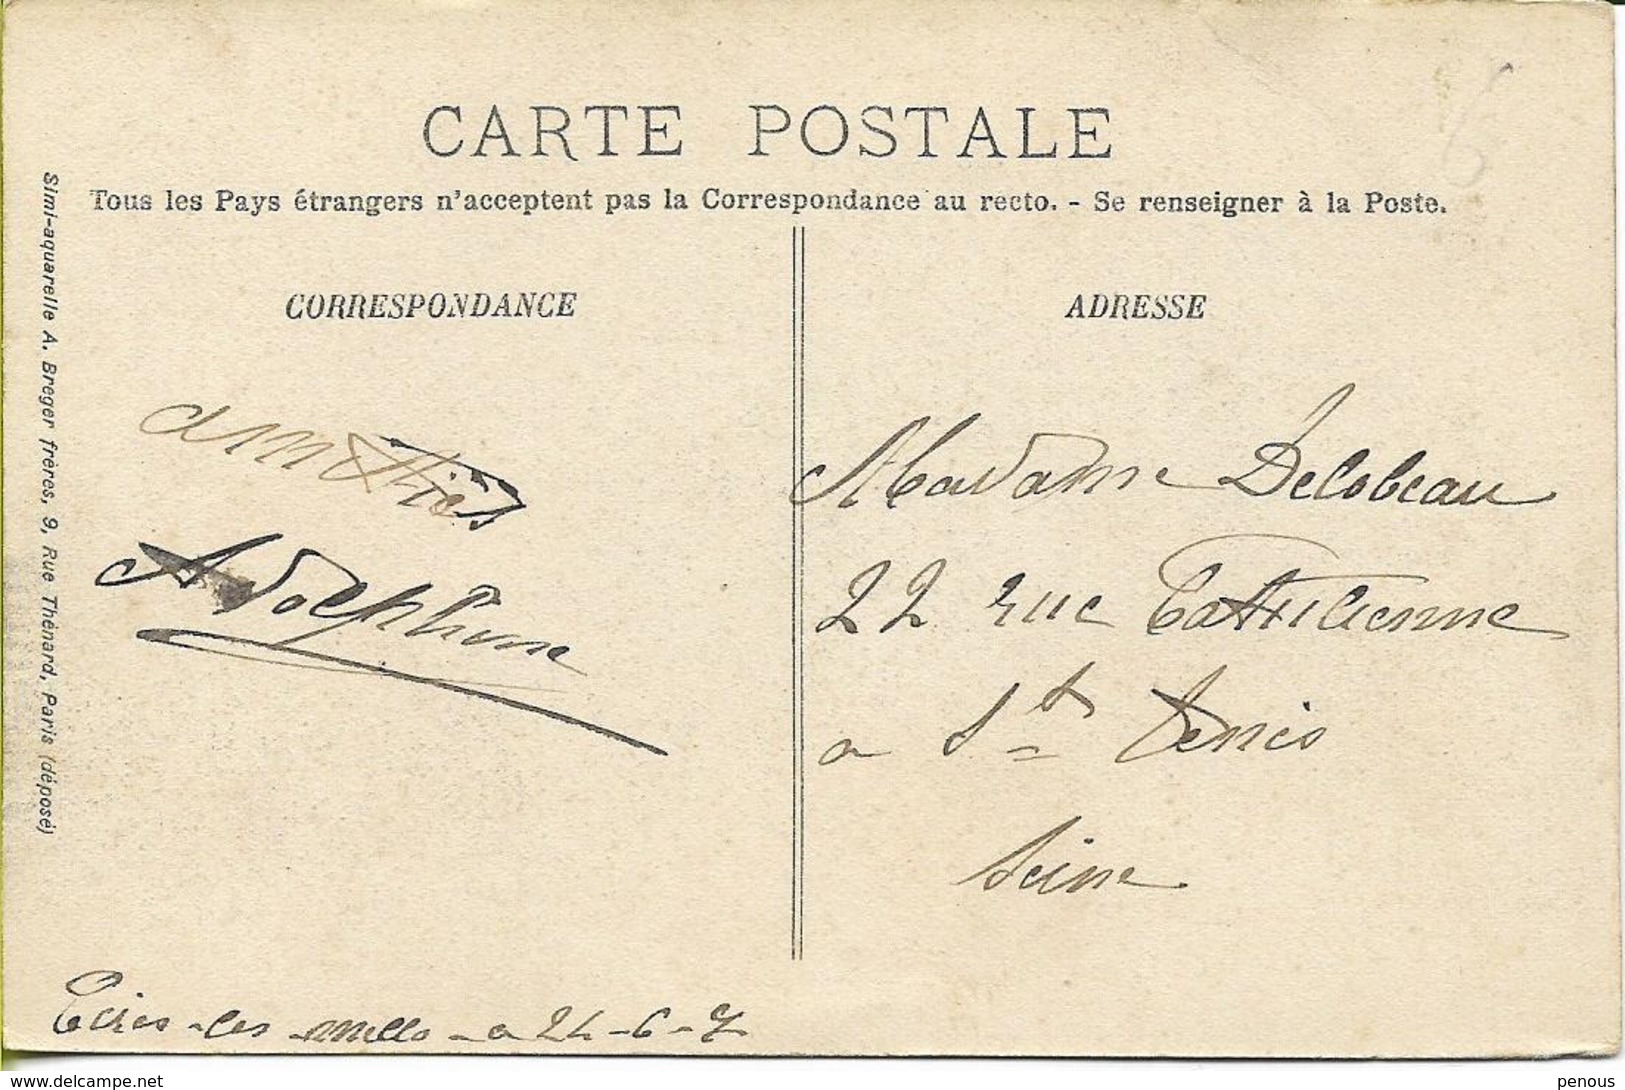 CARTE POSTALE
Tous les Pays étrangers n'acceptent pas la Correspondance au recto. - Se renseigner à la Poste.
Simi-aquarelle A. Breger frères, 9, Rue Thénard, Paris (déposé)
CORRESPONDANCE
amitiés
Adolphine
les 24-6-7
ADRESSE
Madame Delobeau
22 rue Catulienne
a St Denis
Seine
delcampe.net
penous